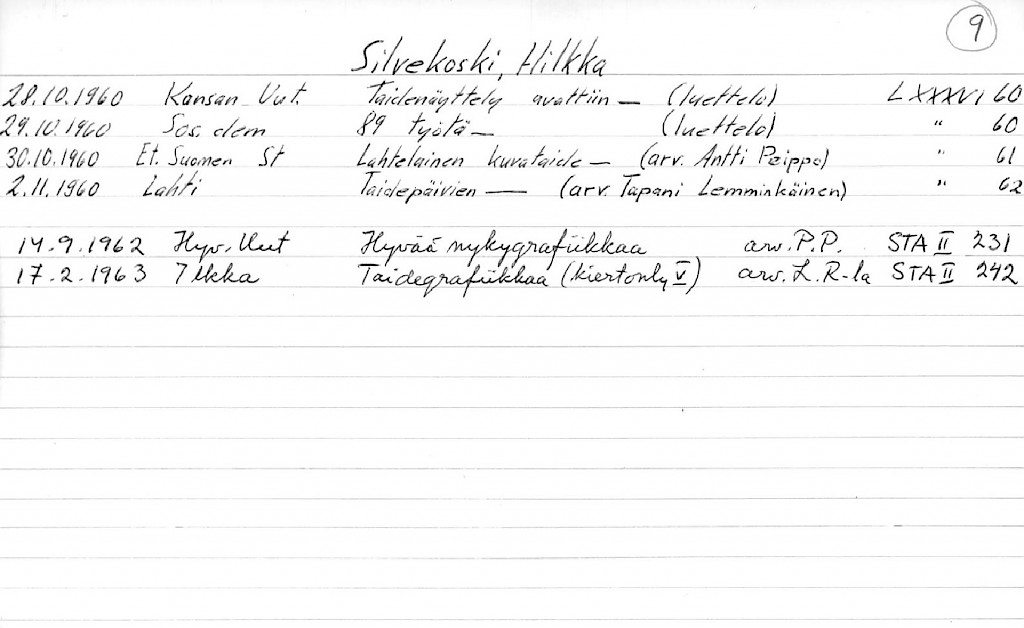 9
Silvekoski, Hilkka
28.10.1960 Kansan Uut. Taidenäyttely avattiin — (luettelo) LXXXVI 60
29.10.1960 Sos. dem 89 työtä — (luettelo) " 60
30.10.1960 Et. Suomen St Lahtelainen kuvataide — (arv. Antti Peippo) " 61
2.11.1960 Lahti Taidepäivien — (arv. Tapani Lemminkäinen) " 62
14.9.1962 Hyv. Uut Hyvää nykygrafiikkaa arv. P.P. STA II 231
17.2.1963 Ilkka Taidegrafiikkaa (kiertonly V) arv. L.R-la STA II 242